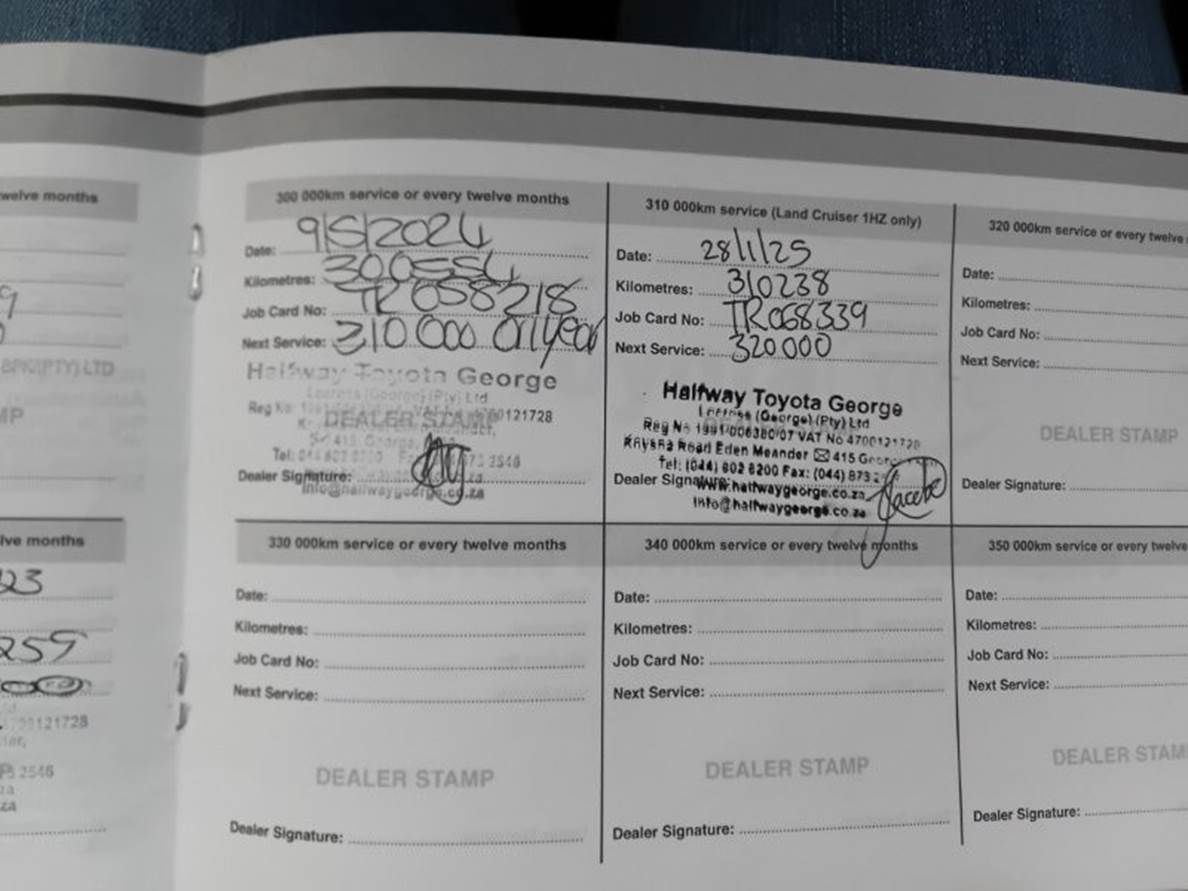 welve months
9
0
(PTY) LTD
MP
300 000km service or every twelve months
Date: 9/5/2024
Kilometres: 300554
Job Card No: TR 058218
Next Service: 310 000 or 1 year
Halfway Toyota George
(George) (Pty) Ltd
Reg No
121728
DEALER STAMP
415 George
Tel: 044 802 8200 Fax
873 2546
Dealer Signature:
info@halfwaygeorge.co.za
310 000km service (Land Cruiser 1HZ only)
Date: 28/1/25
Kilometres: 310238
Job Card No: TR068339
Next Service: 320000
Halfway Toyota George
(George) (Pty) Ltd
Reg No 1991/006380/07 VAT No 4700121728
Knysna Road Eden Meander ✉ 415 George
Tel: (044) 802 8200 Fax: (044) 873 2
Dealer Signature:
www.halfwaygeorge.co.za
info@halfwaygeorge.co.za
320 000km service or every twelve
Date:
Kilometres:
Job Card No:
Next Service:
DEALER STAMP
Dealer Signature:
lve months
23
259
121728
2546
za
za
330 000km service or every twelve months
Date:
Kilometres:
Job Card No:
Next Service:
DEALER STAMP
Dealer Signature:
340 000km service or every twelve months
Date:
Kilometres:
Job Card No:
Next Service:
DEALER STAMP
Dealer Signature:
350 000km service or every twelve
Date:
Kilometres:
Job Card No:
Next Service:
DEALER STAM
Dealer Signature: